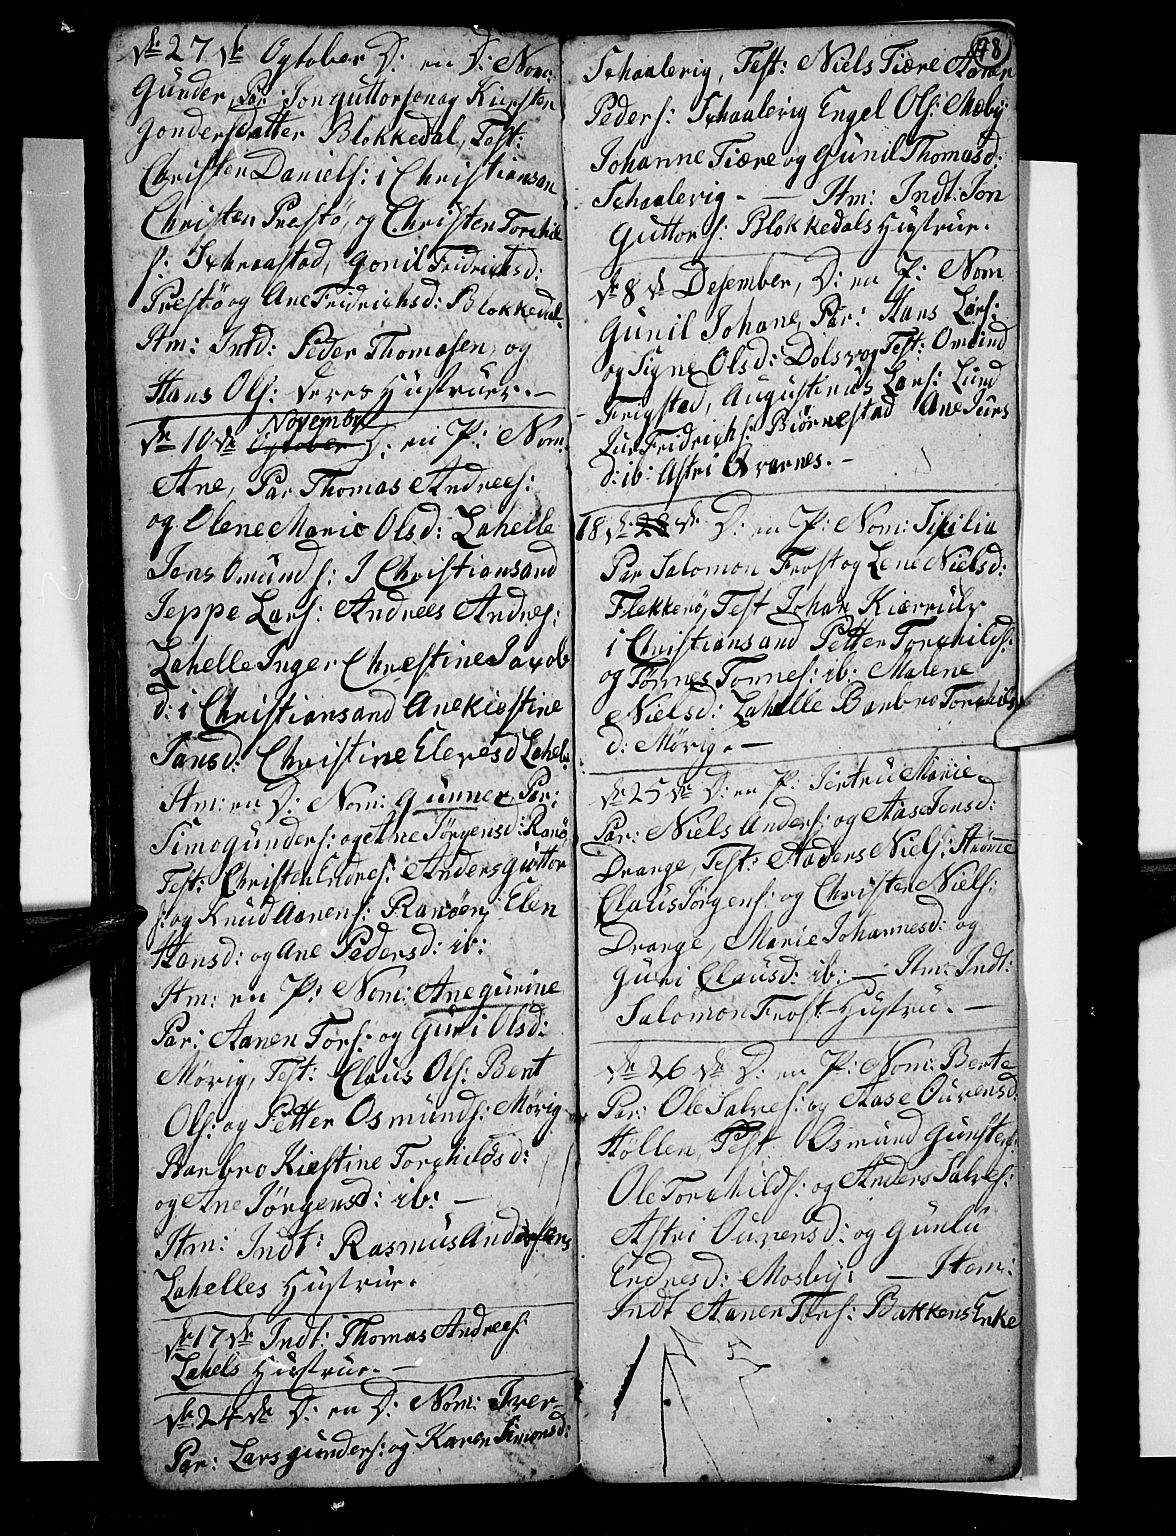 d: 27 de Ogtober D: en D: Nom:
Gunder, Par: Jon guttorsen og Kiersten
Gondersdatter Blokkedal, Test:
Christen Daniels: i Christiansan
Christen Prestø, og Christen Torchil
s: Schraastad, gonil Fridrichsd:
Prestø og Ane Fridrichsd: Blokkedal
Itm: Intd: Peder Thomasen, og
Hans Ols: Deres Hustruer. —
Novembr
d: 10 de Ogtober D: en P: Nom:
Ane, Par Thomas Andrees:
og Olene Marie Olsd: Lahelle
Jens Omunds: I Christiansand
Jeppe Lars: Andrees Andres:
Lahelle Inger Chrestine Jacob
d: i Christiansand Ane Kiestine
Jansd: Christine Eleresd Lahele
Itm: en D: Nom: gunner Par:
Simo gunders: og Ane Jørgensd: Ranø
Test: Christen Endres: Anders guttor
s: og Knud Aanens: Ranøen, Elen
Hansd: og Ane Pedersd: ib:
Itm: en P: Nom: Ane gurine
Par: Aanen Tors: og Guri Olsd:
Mørig, Test: Claus Ols: Bent
Ols: og Petter Osmunds: Mørig
Barbro Kiestine Torchildsd:
og Ane Jørgensd: ib: —
Itm: Indt: Rasmus Andersens
Lahelles Hustrue.
d: 17 de Indt: Thomas Andrees
Lahels Hustrue. —
d: 24 de D: en D: Nom: Iver
Par: Lars gunders: og Karen Simonsd:
178
Schaalevig, Test: Niels Tiære
Peders: Schaalevig Engel Ols: Mæby
Johanne Tiære og Gunil Thomasd:
Schaalevig. — Itm: Indt: Jon
Guttors: Blokkedals Hustrue.
d: 8 de Desember, D: en P: Nom
Gunil Johane, Par: Hans Lars:
og Signe Olsd: Dolsv og Test: Omund
Frigstad, Augustinus Lars: Lund
Jur Fridrichs: Biørnestad Ane Jurs
d: ib: Astri Qvarnes. —
18 de 28 de D: en P: Nom: Sisilia
Par Salomon Frost og Lene Nielsd:
Flekkerø, Test Johan Kiærulf
i Christiansand Petter Torchilds:
og Tønnes Tønnes: ib: Malene
Nielsd: Lahelle Barbro Torchils
d: Mørig. —
d: 25 de D: en P: Jertru Marie
Par: Niels Anders: og Aase Jensd:
Drange, Test: Anders Niels: Strømme
Claus Jørgens: og Christen Niels:
Drange, Marie Johannesd: og
Guri Clausd: ib: — Itm: Indt:
Salomon Frost Hustrue. —
d: 26 de D: en P: Nom: Berte
Par: Ole Salves: og Aase Ouvensd:
Støllen, Test: Osmund Gunstens:
Ole Torchilds: og Anders Salves:
Astri Ouvensd: og Gunlu
Endresd: Mosby: — Itom:
Indt Aanen Tors: Bakkens Enke